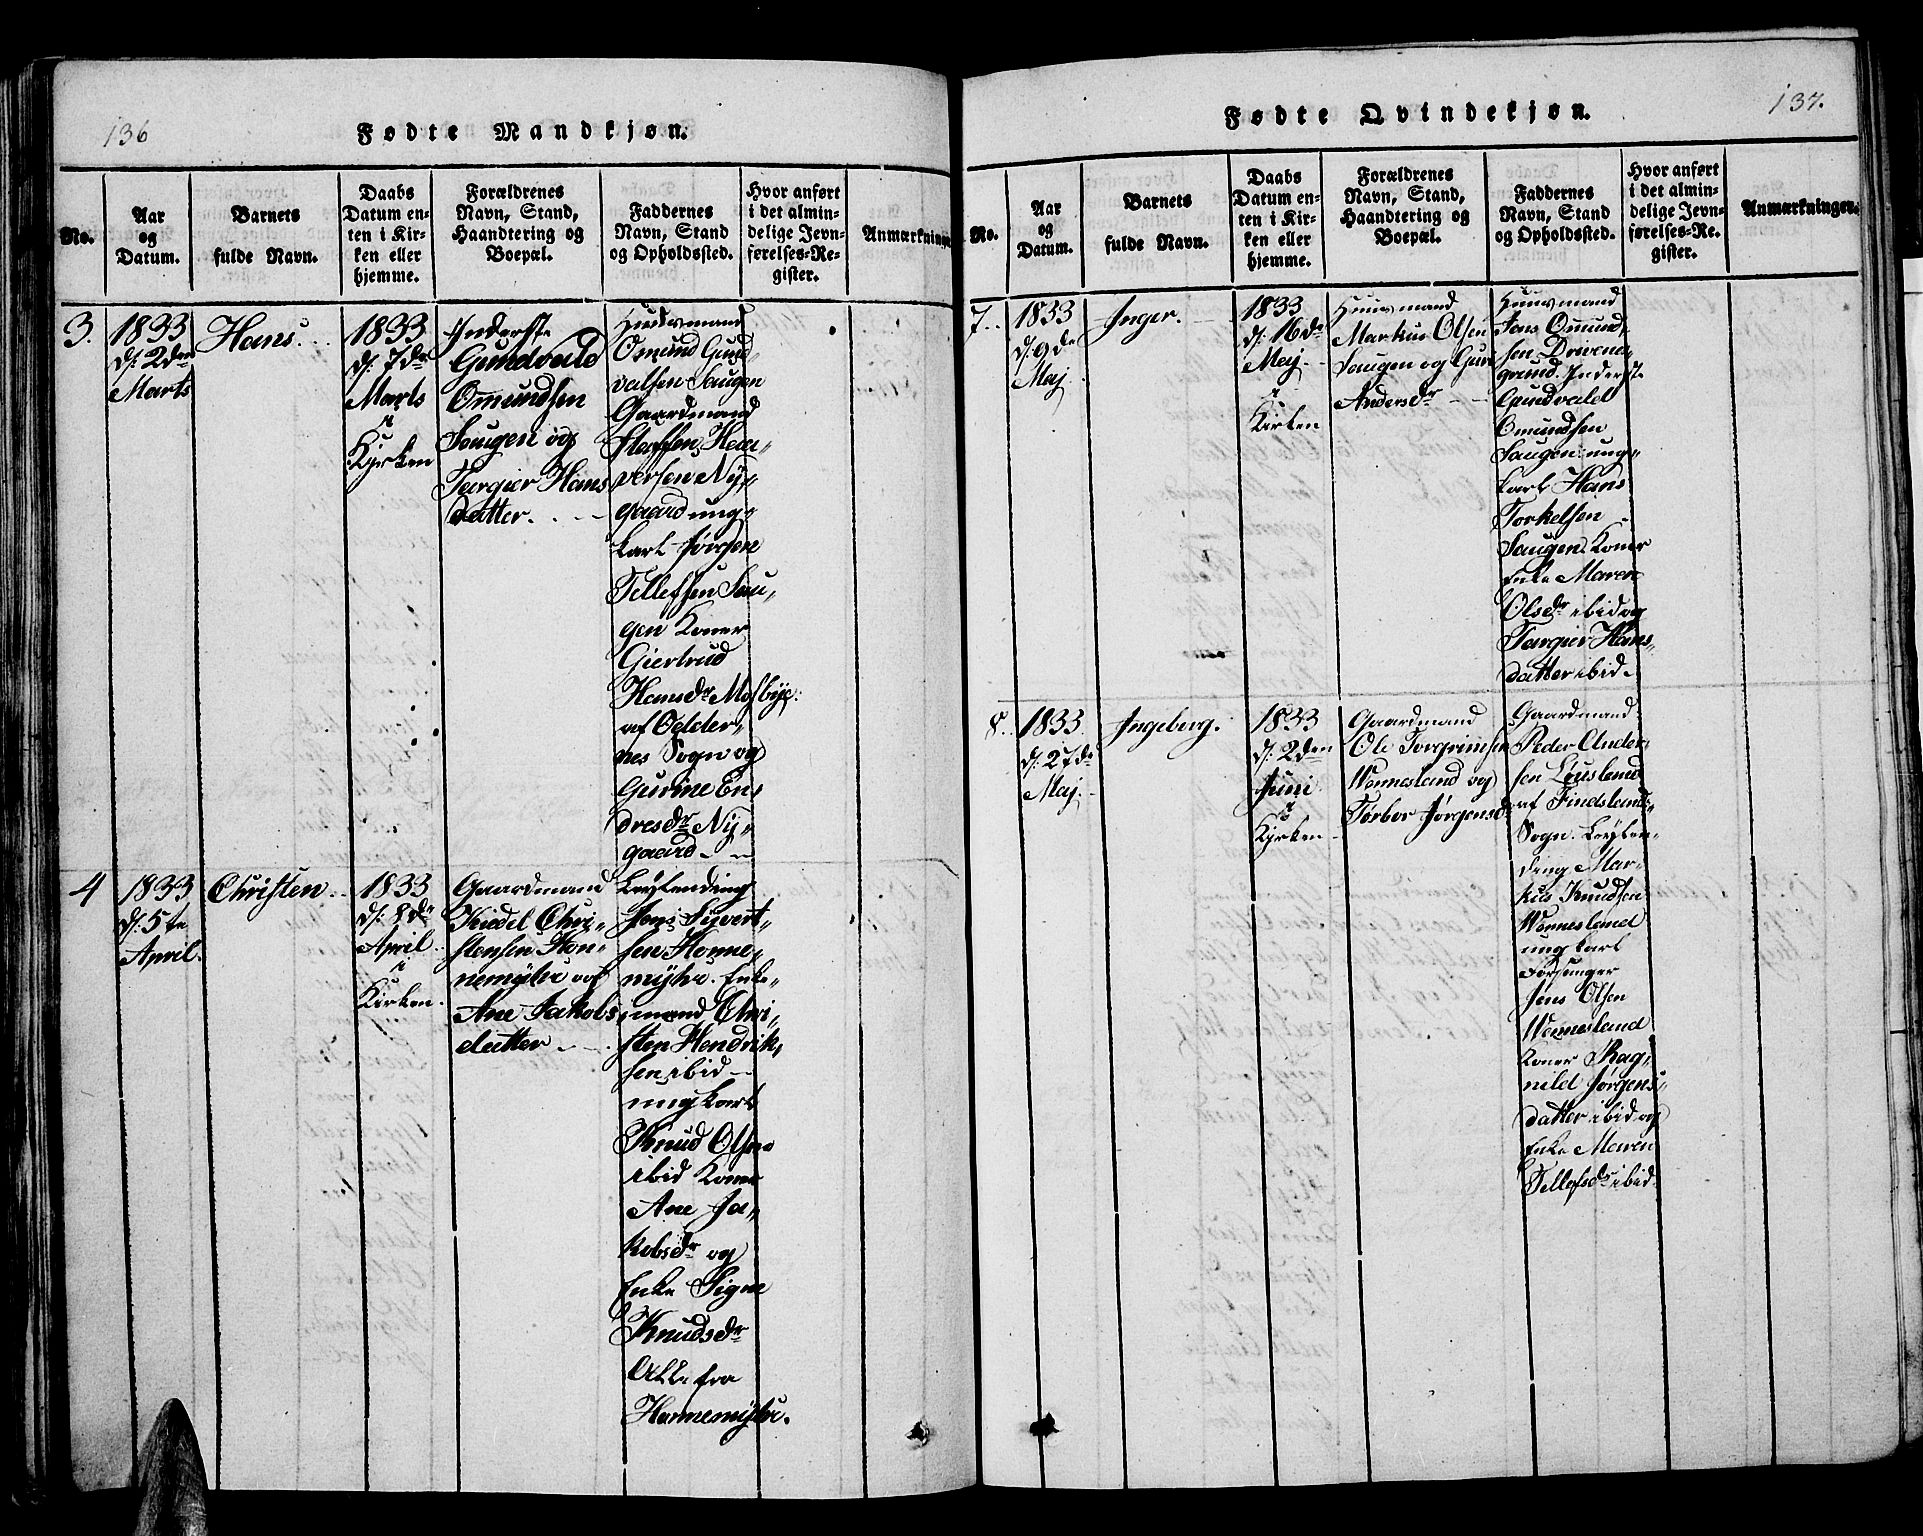 136
Fødte Mandkjøn.
No.
Aar
og
Datum.
Barnets
fulde Navn.
Daabs
Datum en-
ten i Kir-
ken eller
hjemme.
Forældrenes
Navn, Stand,
Haandtering og
Boepæl.
Faddernes
Navn, Stand
og Opholdssted.
Hvor anført
i det almin-
delige Jevn-
førelses-Re-
gister.
Anmærkninger
3.
1833
d: 2den
Marts
Hans.
1833
d: 7de
Marts
i
Kyrken
Inderste
Gundvald
Omundsen
Saugen og
Targier Hans
datter.
Huusmand
Omund Gund-
valsen Saugen
Gaardmand
Steffen Hau-
versen Ny-
gaard ung-
karl Jørgen
Tellefsen Sau-
gen Koner
Giertrud
Hansdr Mosbye
af Odder-
nes Sogn og
Gurine En-
dresdr Ny-
gaard
4
1833
d: 5te
April.
Christen
1833
d: 8de
April
i
Kirken.
Gaardmand
Kiedel Chri-
stensen Hon-
nemyhr og
Ane Jakobs
datter
Leylending
Jens Syvert-
sen Honne-
myhr. Enke-
mand Chri-
sten Hendrik-
sen ibid
ungkarl
Knud Olsen
ibid Kone
Ane Ja-
kobsdr og
Enke Signe
Knudsdr
Alle fra
Honnemyhr.
137.
Fødte Qvindekjøn.
No.
Aar
og
Datum.
Barnets
fulde Navn.
Daabs
Datum en-
ten i Kir-
ken eller
hjemme.
Forældrenes
Navn, Stand,
Haandtering og
Boepæl.
Faddernes
Navn, Stand
og Opholdssted.
Hvor anført
i det almin-
delige Jevn-
førelses-Re-
gister.
Anmærkninger.
7.
1833
d: 9de
Maj
Inger.
1833
d: 16de
Maj
i
Kirken
Huusmand
Markus Olsen
Saugen og Guri
Andersdr
Huusmand
Jens Omund-
sen Drivenes
grund. Inderste
Gundvald
Omundsen
Saugen ung-
karl Hans
Torkelsen
Saugen Koner
Enke Maren
Olsdr ibid og
Targier Hans-
datter ibid.
8.
1833
d: 27de
Maj.
Ingeberg.
1833
d: 2den
Juni
i
Kyrken
Gaardmand
Ole Torgrimsen
Wonnesland og
Torbor Jørgensd
Gaardmand
Peder Ander-
sen Løusland
af Findslands
Sogn. Leylen-
ding Mar-
kus Knudsen
Wonnesland
ungkarl
Forsanger
Jens Olsen
Wonnesland
Koner Rag-
nild Jørgens-
datter ibid og
Enke Maren
Tellefsdr ibid